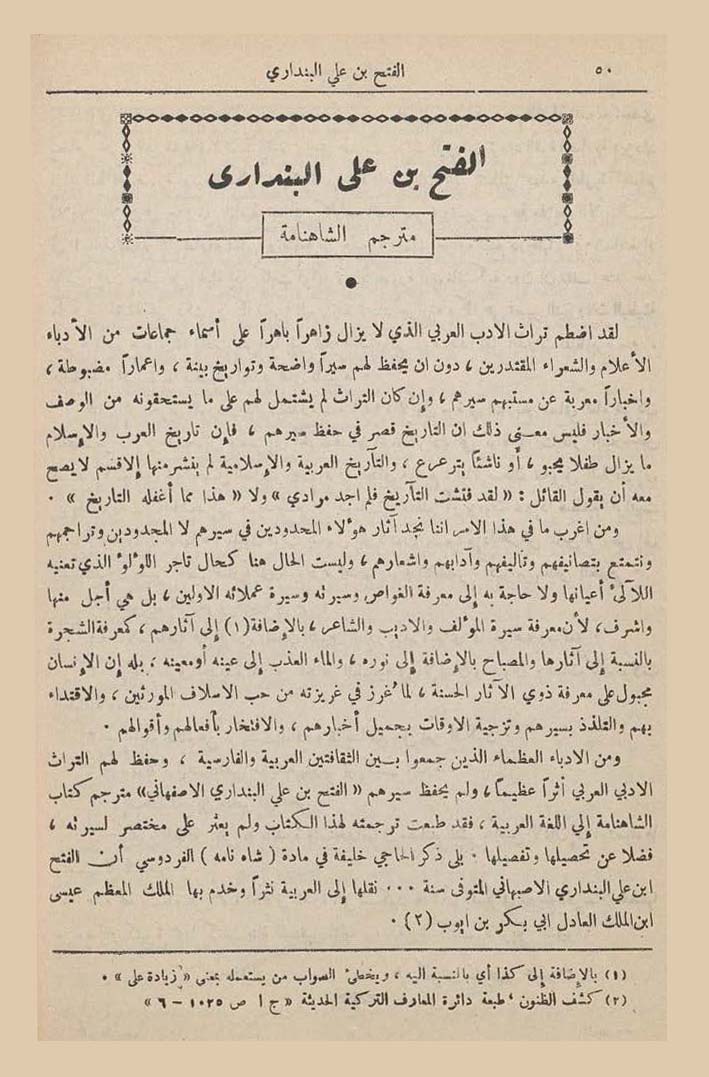 ٥٠
الفتح بن علي البنداري
الفتح بن على البندارى
مترجم الشاهنامة
لقد اضطم تراث الادب العربي الذي لا يزال زاهراً باهراً على أسماء جماعات من الأدباء
الأعلام والشعراء المقتدرين ، دون ان يحفظ لهم سيراً واضحة وتواريخ بينة ، واعماراً مضبوطة ،
واخباراً معربة عن مستبهم سيرهم ، وإن كان التراث لم يشتمل لهم على ما يستحقونه من الوصف
والأخبار فليس معنى ذلك ان التاريخ قصر في حفظ سيرهم ، فإن تاريخ العرب والإسلام
ما يزال طفلا يحبو ، أو ناشئاً يترعرع ، والتأريخ العربية والإسلامية لم ينشر منها إلا قسم لا يصح
معه أن يقول القائل : « لقد فتشت التأريخ فلم اجد مرادي » ولا « هذا مما أغفله التاريخ » .
ومن اغرب ما في هذا الامر اننا نجد آثار هؤلاء المحدودين في سيرهم لا المحدودين وتراجمهم
ونتمتع بتصانيفهم وتاليفهم وآدابهم واشعارهم ، وليست الحال هنا كحال تاجر اللؤلؤ الذي تعنيه
اللآلئ أعيانها ولا حاجة به إلى معرفة الغواص وسيرته وسيرة عملائه الاولين ، بل هي أجل منها
واشرف ، لأن معرفة سيرة المؤلف والاديب والشاعر ، بالإضافة (١) إلى آثارهم ، كمعرفة الشجرة
بالنسبة إلى آثارها والمصباح بالإضافة إلى نوره ، والماء العذب إلى عينه أو معينه ، بله إن الإنسان
مجبول على معرفة ذوي الآثار الحسنة ، لما غرز في غريزته من حب الاسلاف المورثين ، والاقتداء
بهم والتلذذ بسيرهم وتزجية الاوقات بجميل أخبارهم ، والافتخار بأفعالهم وأقوالهم .
ومن الادباء العظماء الذين جمعوا بين الثقافتين العربية والفارسية ، وحفظ لهم التراث
الادبي العربي أثراً عظيماً ، ولم يحفظ سيرهم « الفتح بن علي البنداري الاصفهاني » مترجم كتاب
الشاهنامة إلي اللغة العربية ، فقد طبعت ترجمته لهذا الكتاب ولم يعثر على مختصر لسيرته ،
فضلا عن تحصيلها وتفصيلها . بلى ذكر الحاجي خليفة في مادة ( شاه نامه ) الفردوسي أن الفتح
ابن علي البنداري الاصبهاني المتوفى سنة ... نقلها إلى العربية نثراً وخدم بها الملك المعظم عيسى
ابن الملك العادل ابي بكر بن ايوب (٢) .
(١) بالإضافة إلى كذا أي بالنسبة اليه ، ويخطئ الصواب من يستعمله بمعنى « زيادة على » .
(٢) كشف الظنون ، طبعة دائرة المعارف التركية الحديثة « ج ١ ص ١٠٢٥ – ٦ »